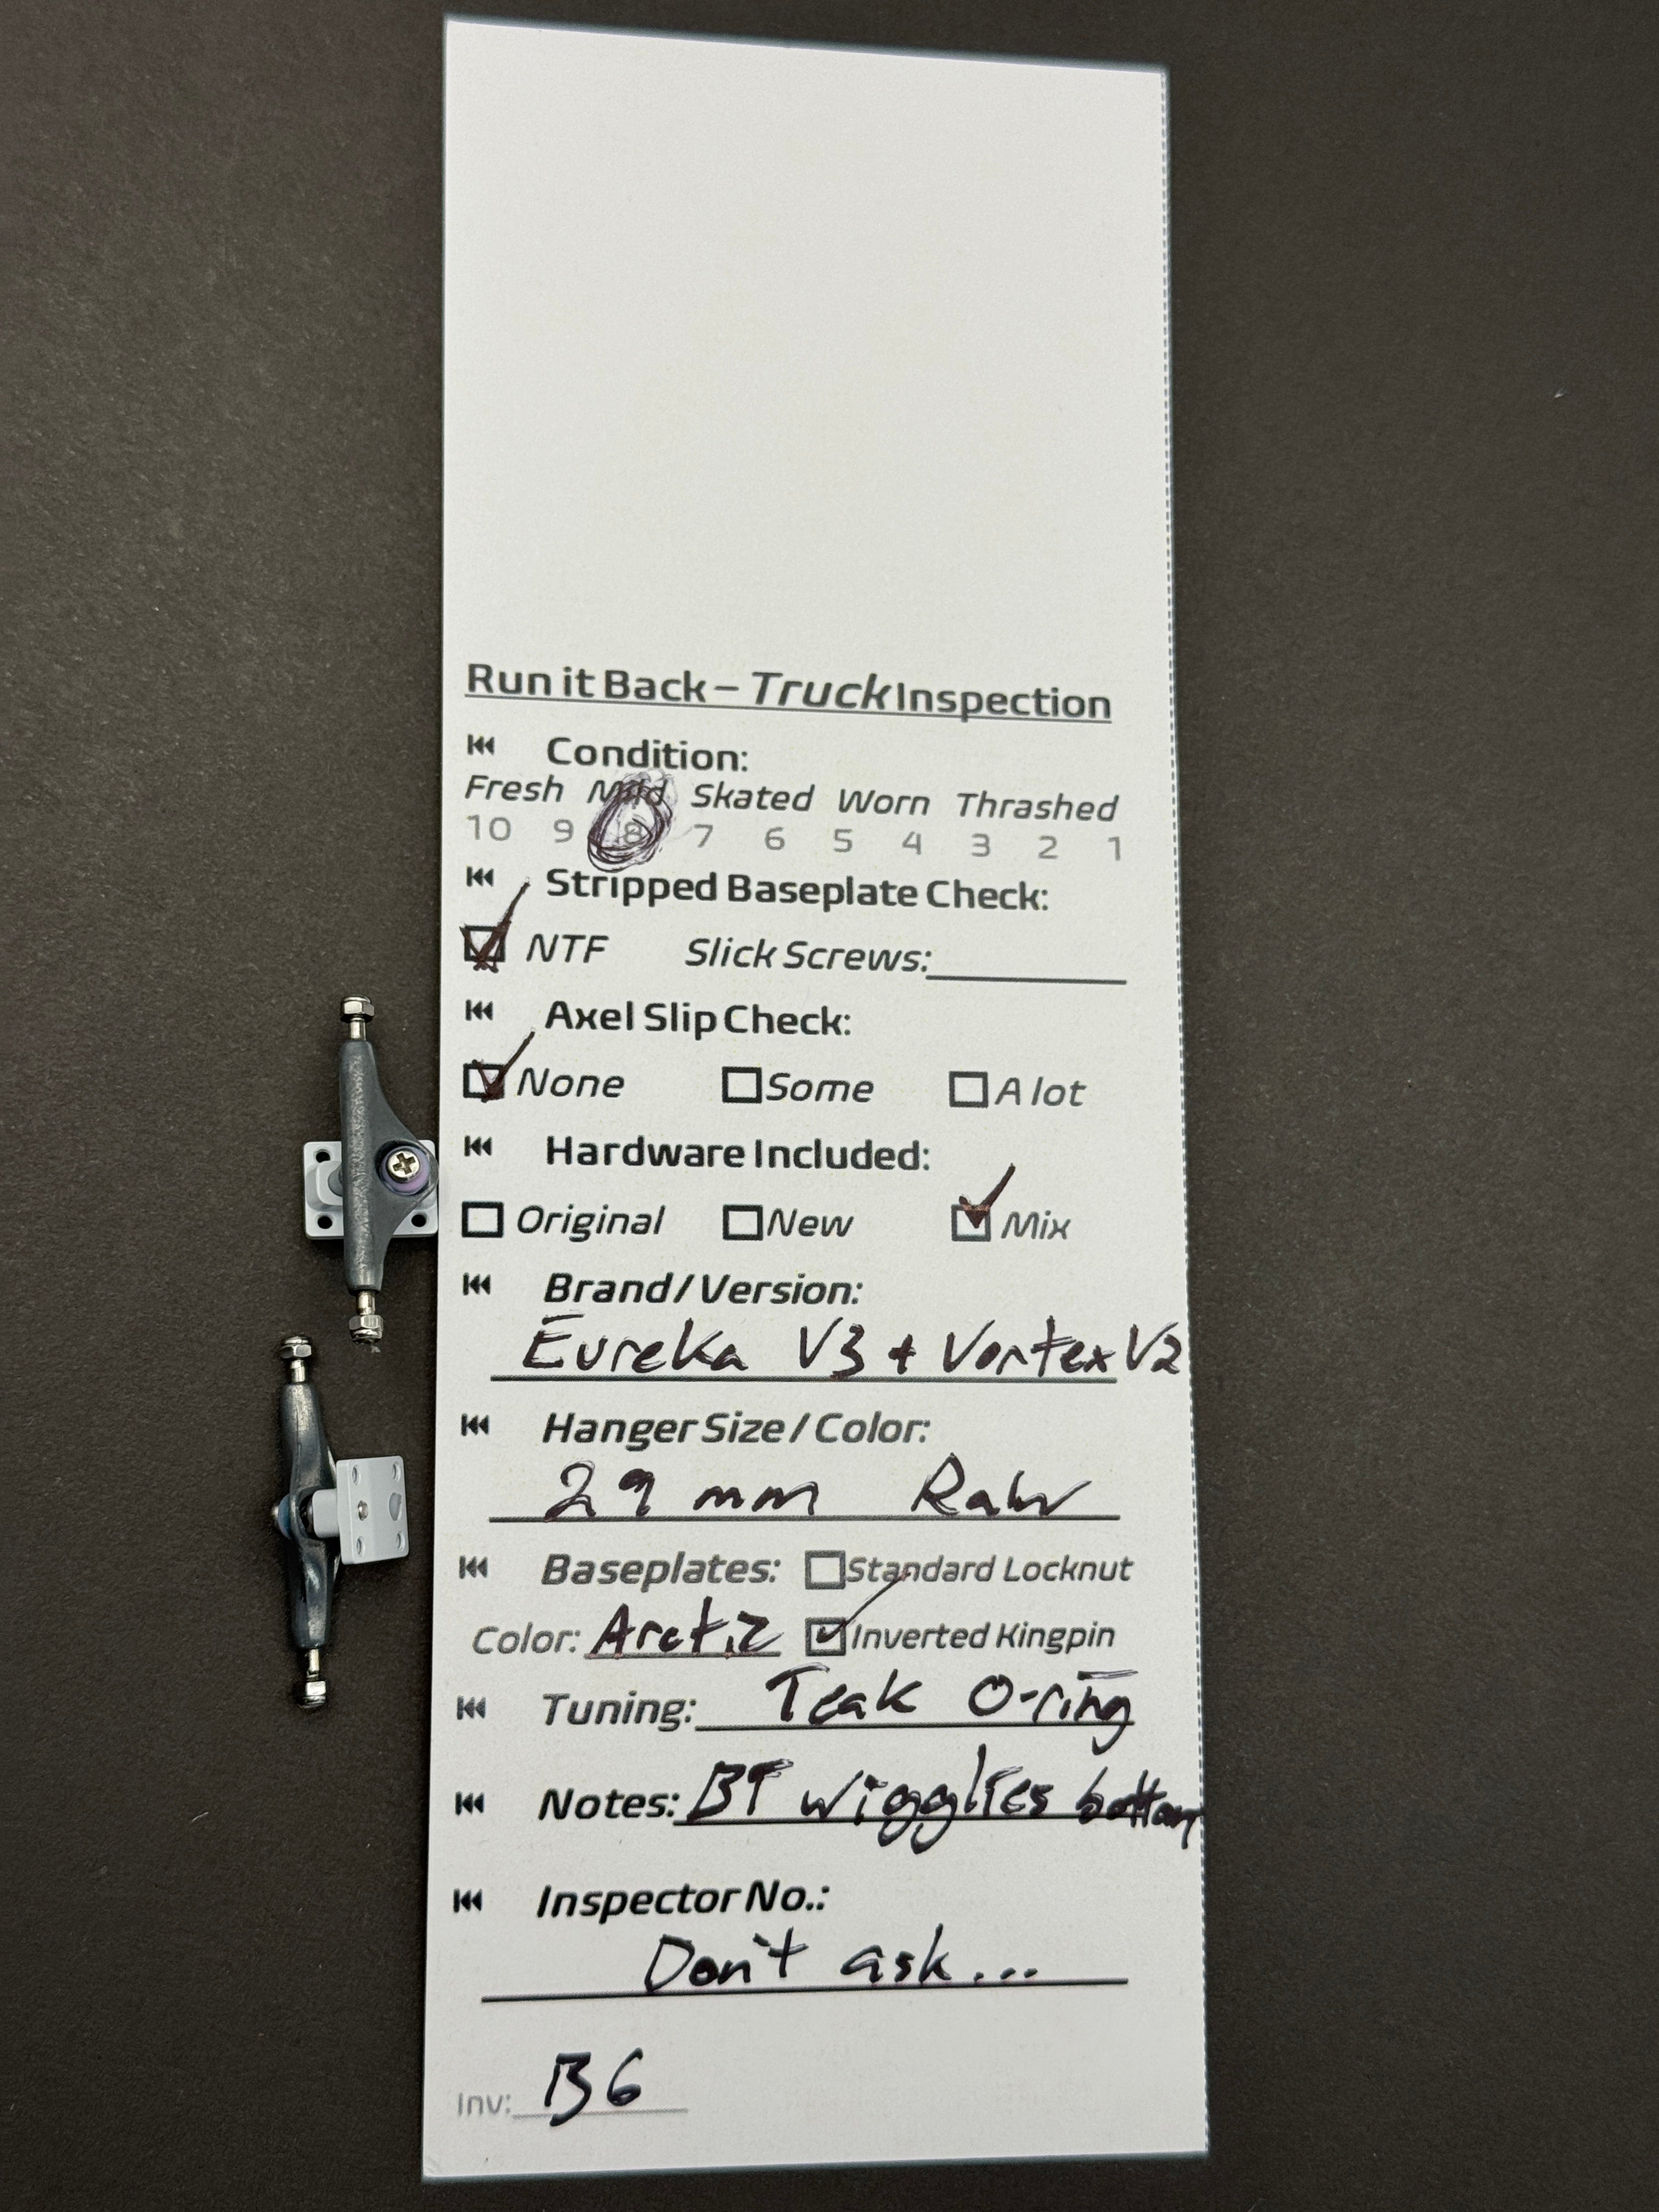 Run it Back – Truck Inspection
Condition:
Fresh Mild Skated Worn Thrashed
10 9 8 7 6 5 4 3 2 1
Stripped Baseplate Check:
NTF Slick Screws:
Axel Slip Check:
None Some A lot
Hardware Included:
Original New Mix
Brand / Version:
Eureka V3 + Vortex V2
Hanger Size / Color:
29 mm Raw
Baseplates: Standard Locknut
Color: Arctic Inverted Kingpin
Tuning: Teak O-ring
Notes: BT wigglies bottom
Inspector No.:
Don't ask...
Inv: B6